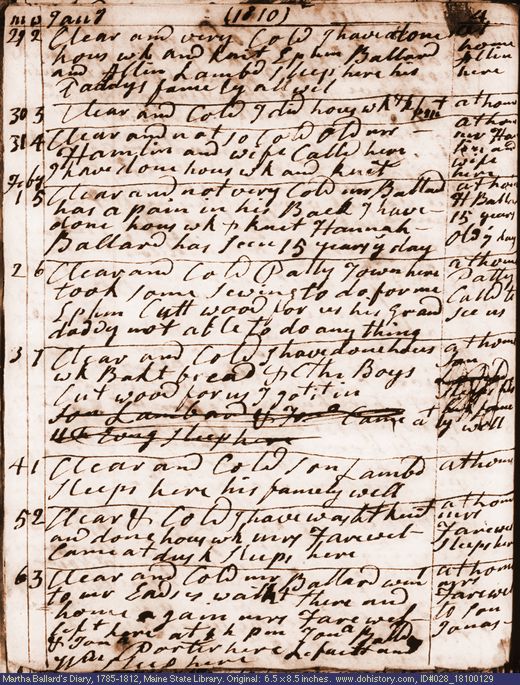 m w Jany (1810)
29 2 Clear and very Cold I have done at
hous wk and knit Ephm Ballard home
and Allin Lambd Sleep here his Allin
Daddys famely all well here
30 3 Clear and Cold I did hous wk & knit at home
31 4 Clear and not so Cold old mr at home
Hamlin and wife Calld here mr Ham
I have done hous wk and knit lin and wife here
Feby
1 5 Clear and not very Cold mr Ballard at home
has a pain in his Back I have H Ballard
done hous wk & knit Hannah 15 years
Ballard has Seen 15 years ys day old ys day
2 6 Clear and Cold Patty Town here at home
took some Sewing to do for me Patty
Ephm Cutt wood for us his Grand Calld to
daddy not able to do any thing see us
3 7 Clear and Cold I have done hous at home
wk Bakt bread &c The Boys son
Cut wood for us I got it in
Son Lambd and Came at
Sleep here well
4 1 Clear and Cold Son Lambd at home
Sleeps here his famely well
5 2 Clear & Cold I have washt knit at home
and done hous wk mrs Farewel mrs Farewel
Came at dusk Sleeps here Sleeps here
6 3 Clear and Cold mr Ballard went at home
to mr Eads is walkt there and mrs
home again mrs Farewel Farewel
left here at pm Jona Balld to son
Porter here Jonas
Sleep here
Martha Ballard's Diary, 1785-1812, Maine State Library. Original: 6.5 x 8.5 inches. www.dohistory.com, ID#028_18100129